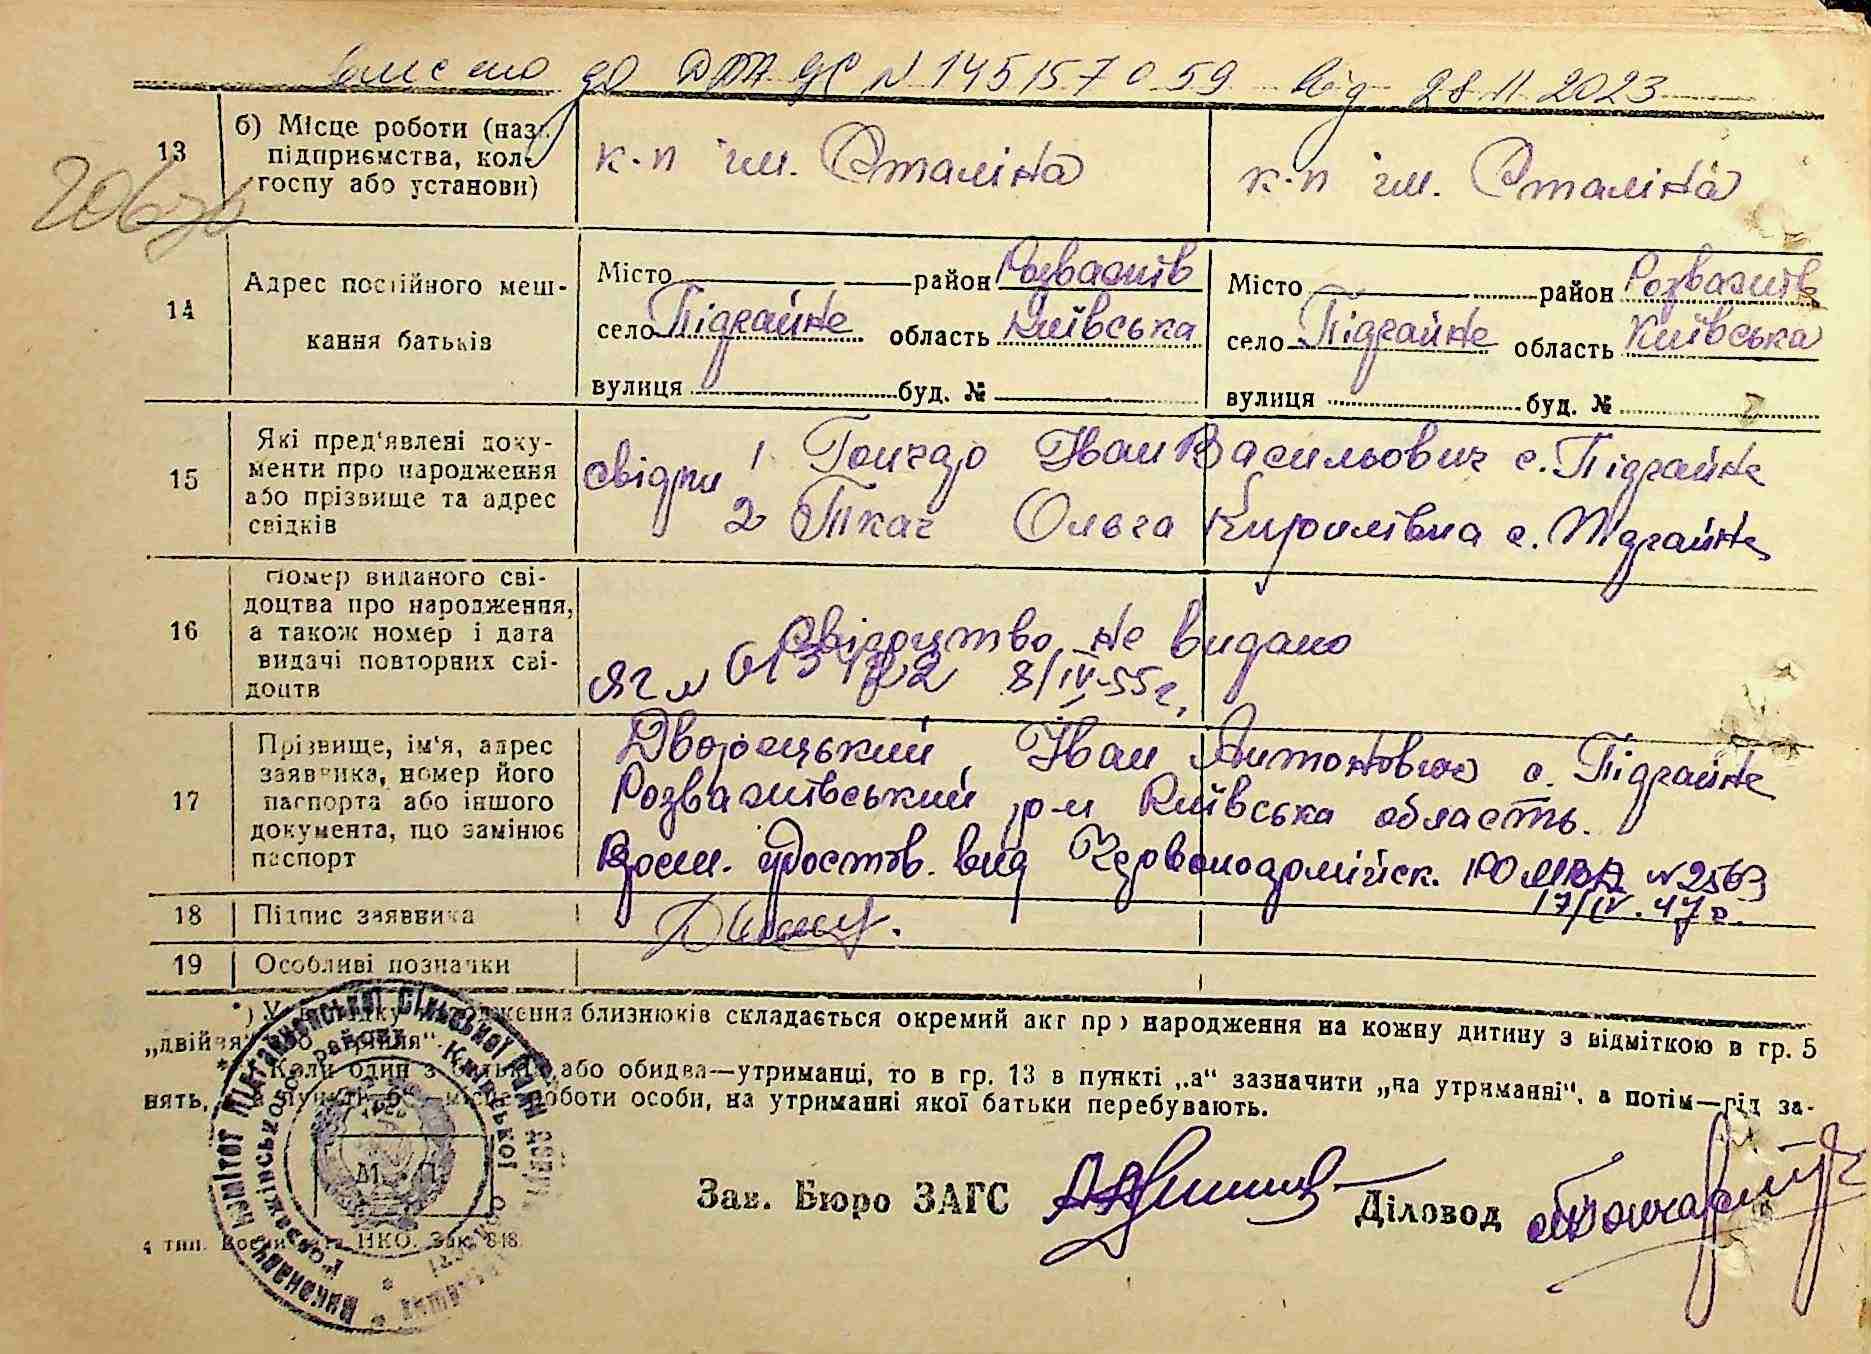 внесено до ДРА ЦС N 145157059 від 28 11 2023
13 б) Місце роботи (назв. підприємства, колгоспу або установи) к-п ім. Сталіна к-п ім. Сталіна
14 Адрес постійного мешкання батьків
Місто район Розважів Місто район Розважів
село Підгайне область Київська село Підгайне область Київська
вулиця буд. № вулиця буд. №
15 Які пред'явлені документи про народження або прізвище та адрес свідків
свідки 1 Гончар Іван Васильович с. Підгайне
2 Ткач Ольга Кирилівна с. Підгайне
16 Номер виданого свідоцтва про народження, а також номер і дата видачі повторних свідоцтв
Свідоцтво не видано
ЯГ N 8/IV-55 г.
17 Прізвище, ім'я, адрес заявника, номер його паспорта або іншого документа, що замінює паспорт
Дворецький Іван Антонович с. Підгайне
Розважівський р-н Київська область.
удостов. вид Червоноармійск. РО МВД N 2563
17/IV.47 г.
18 Підпис заявника
19 Особливі позначки
*) У випадку народження близнюків складається окремий акт про народження на кожну дитину з відміткою в гр. 5
„двійня" або „трійня".
Коли один з батьків або обидва—утриманці, то в гр. 13 в пункті „а" зазначити „на утриманні", а потім—рід за-
нять, в пункті б—місце роботи особи, на утриманні якої батьки перебувають.
М. П.
Зав. Бюро ЗАГС Діловод
4 тип. НКО. Зак. 848
Виконавчий комітет Підгайнянської сільської ради
Розважівського району Київської області